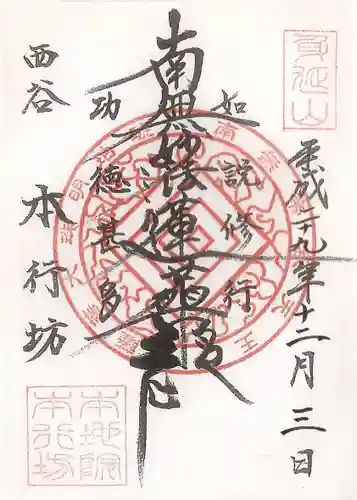 身延山
平成二十九年十二月三日
如説修行
南無妙法蓮華経
功徳甚多
西谷
本行坊
本地院
本行坊